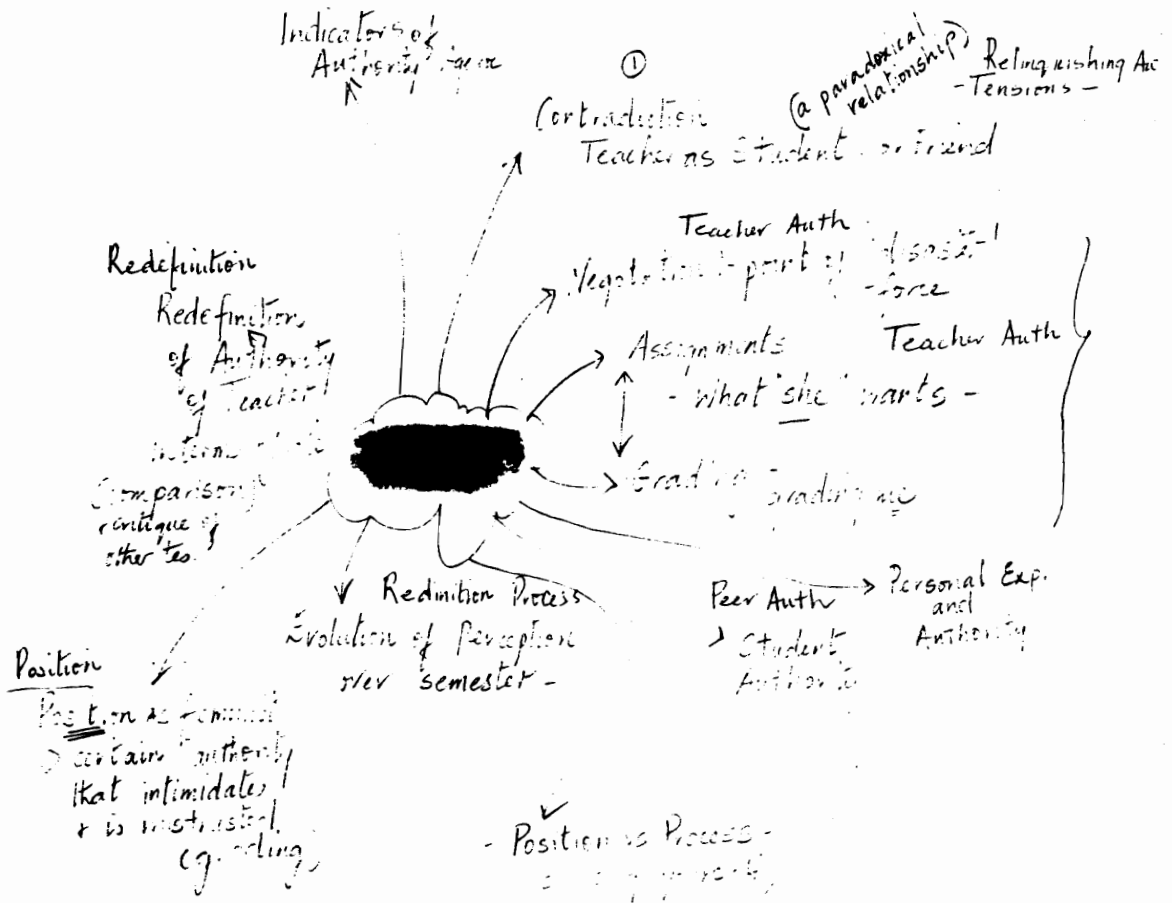 Indicators of
Authority
①
(a paradoxical
relationship)
Relinquishing Au
- Tensions -
Contradiction
Teacher as Student or Friend
Teacher Auth
Negotiation point of
force
Assignments
Teacher Auth
- What "she" wants -
Grading -
grading me
Redefinition
Redefinition
of Authority
of Teacher
Comparison
critique of
other
Redinition Process
Evolution of Perception
over semester -
Peer Auth
Student
Authority
Personal Exp.
and
Authority
Position
Position as
certain "authority
that intimidates
& is mistrusted.
- Position vs Process -